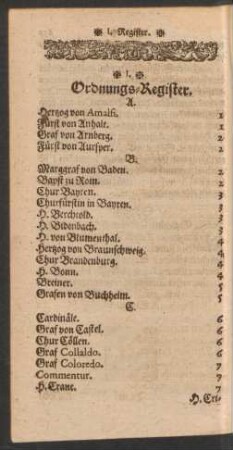 ❋ I. Register. ❋
❋ I. ❋
Ordnungs-Register.
A.
Hertzog von Amalfi. 1
Fürst von Anhalt. 1
Graf von Arnberg. 2
Fürst von Aursper. 2
B.
Marggraf von Baden. 2
Bapst zu Rom. 2
Chur Bayren. 3
Churfürstin in Bayren. 3
H. Berchtold. 3
H. Bidenbach. 3
H. von Blumenthal. 4
Hertzog von Braunschweig. 4
Chur Brandenburg. 4
H. Bonn. 4
Breiner. 5
Grafen von Buchheim. 5
C.
Cardinäle. 6
Graf von Castel. 6
Chur Cöllen. 6
Graf Collaldo. 6
Graf Coloredo. 7
Commentur. 7
H. Crane. 7
H. Cri-